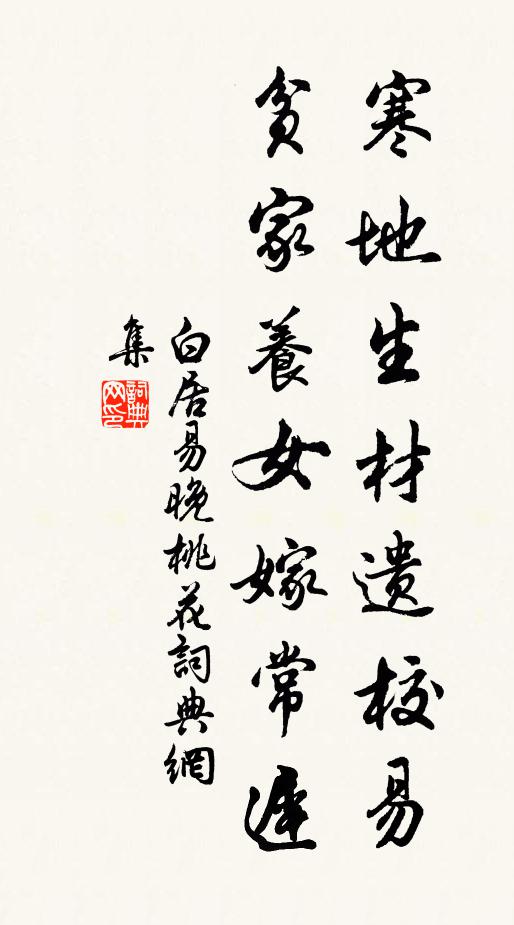 寒地生材遺校易
貧家養女嫁常遲
白居易晚桃花詞典網
集
詞典网印